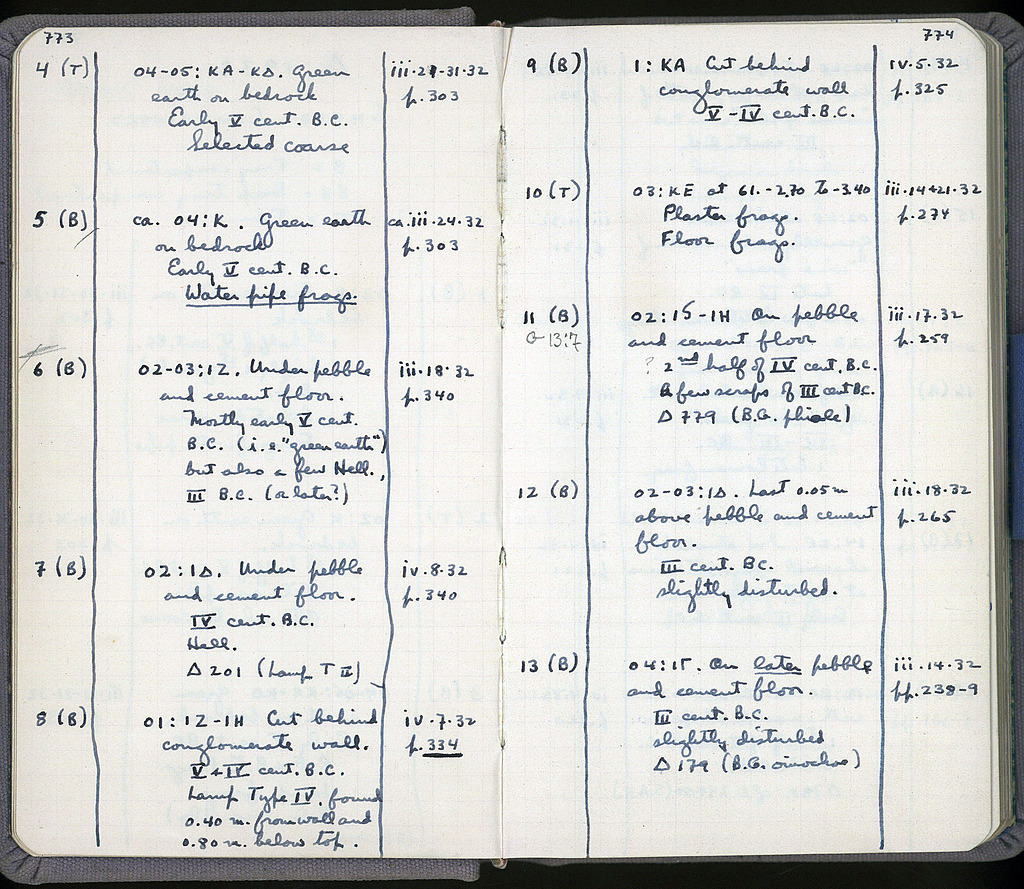 773
4 (T) 04-05: KA-KΔ. Green iii-29-31-32
earth on bedrock p. 303
Early V cent. B.C.
Selected coarse
5 (B) ca. 04: K. Green earth ca. iii-24-32
on bedrock p. 303
Early V cent. B.C.
Water pipe frags.
6 (B) 02-03: IZ. Under pebble iii-18-32
and cement floor. p. 340
Mostly early V cent.
B.C. (i.e. "green earth")
but also a few Hell.,
III B.C. (or later?)
7 (B) 02: IΔ. Under pebble iv-8-32
and cement floor. p. 340
IV cent. B.C.
Hell.
Δ 201 (Lamp T II)
8 (B) 01: IZ-IH Cut behind iv-7-32
conglomerate wall. p. 334
V + IV cent. B.C.
Lamp Type IV, found
0.40 m. from wall and
0.80 m. below top.
774
9 (B) 1: KA Cut behind iv-5-32
conglomerate wall p. 325
V-IV cent. B.C.
10 (T) 03: KE at 61. -2.70 to -3.40 iii-14+21-32
Plaster frags. p. 274
Floor frags.
11 (B) 02: IS-IH On pebble iii-17-32
G 13:7 and cement floor p. 259
? 2nd half of IV cent. B.C.
A few scraps of III cent B.C.
Δ 779 (B.G. phiale)
12 (B) 02-03: IΔ. Last 0.05m iii-18-32
above pebble and cement p. 265
floor.
III cent. BC.
slightly disturbed.
13 (B) 04: IΓ. On later pebble iii-14-32
and cement floor. pp. 238-9
III cent. B.C.
slightly disturbed
Δ 179 (B.G. oinochoe)